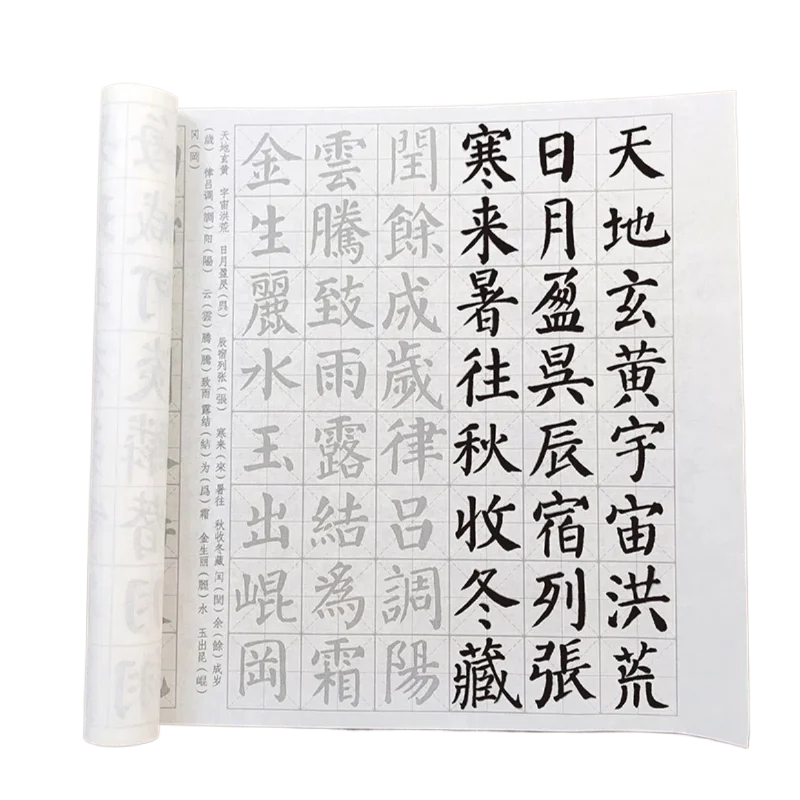 天地玄黄宇宙洪荒
日月盈昃辰宿列張
寒来暑往秋收冬藏
閏餘成歲律吕調陽
雲騰致雨露結為霜
金生麗水玉出崐岡
天地玄黄 宇宙洪荒 日月盈昃(昃) 辰宿列张(張) 寒来(來)暑往 秋收冬藏 闰(閏)余(餘)成岁
(歲) 律吕调(調)阳(陽) 云(雲)腾(騰)致雨 露结(結)为(爲)霜 金生丽(麗)水 玉出昆(崐)
冈(岡)